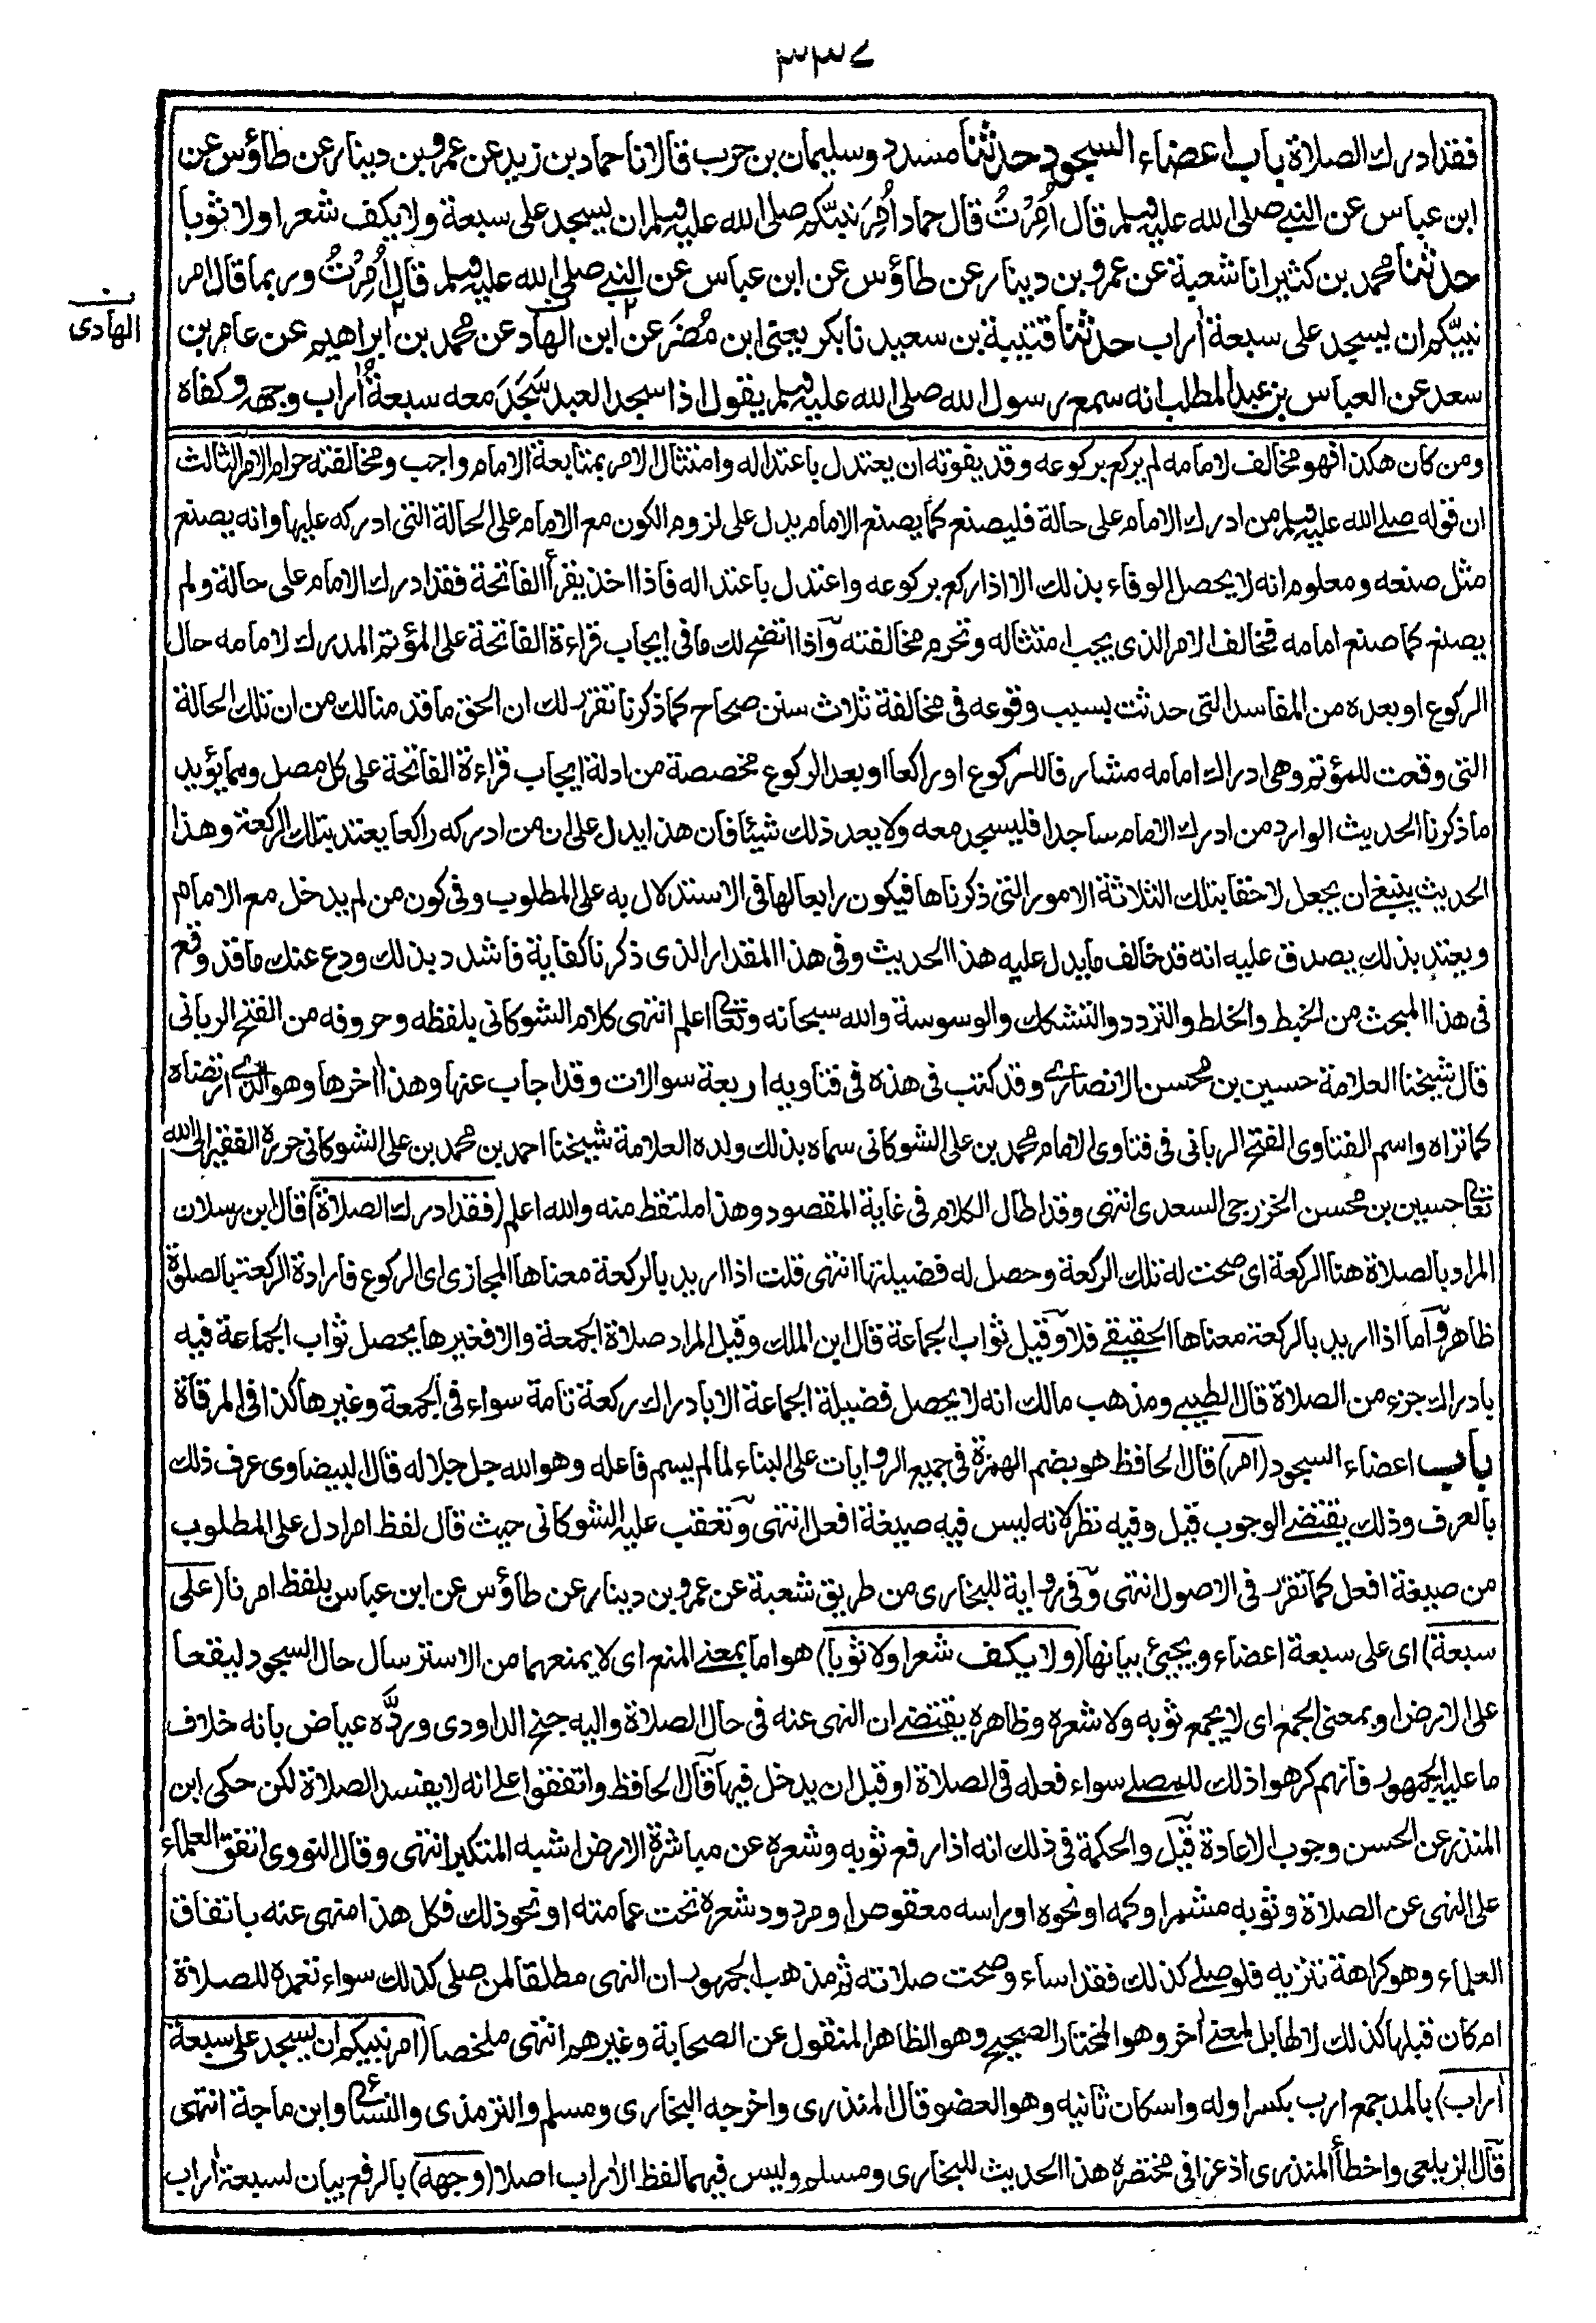 ٣٣٧
فقد ادرك الصلاة باب اعضاء السجود حدثنا مسدد وسليمان بن حرب قالا نا حماد بن زيد عن عمرو بن دينار عن طاؤس عن
ابن عباس عن النبي صلى الله عليه وسلم قال اُمِرْتُ قال حماد اُمِرَ نبيّكم صلى الله عليه وسلم ان يسجد على سبعة ولا يكف شعرا ولا ثوبا
حدثنا محمد بن كثير انا شعبة عن عمرو بن دينار عن طاؤس عن ابن عباس عن النبي صلى الله عليه وسلم قال اُمِرْتُ وربما قال امر
نبيّكم ان يسجد على سبعة اٰراب حدثنا قتيبة بن سعيد نا بكر يعنى ابن مُضَرَ عن ابن الهاد عن محمد بن ابراهيم عن عامر بن
ن الهادى
سعد عن العباس بن عبد المطلب انه سمع رسول الله صلى الله عليه وسلم يقول اذا سجد العبد سَجَدَ معه سبعةُ اٰراب وجهه وكفاه
ومن كان هكذا فهو مخالف لامامه لم يركع بركوعه وقد يفوته ان يعتدل باعتداله وامتثال الامر بمتابعة الامام واجب ومخالفته حرام الامر الثالث
ان قوله صلى الله عليه وسلم من ادرك الامام على حالة فليصنع كما يصنع الامام يدل على لزوم الكون مع الامام على الحالة التى ادركه عليها وانه يصنع
مثل صنعه ومعلوم انه لا يحصل الوفاء بذلك الا اذا ركع بركوعه واعتدل باعتداله فاذا اخذ يقرأ الفاتحة فقد ادرك الامام على حالة ولم
يصنع كما صنع امامه فخالف الامر الذى يجب امتثاله وتحرم مخالفته واذا اتضح لك ما فى ايجاب قراءة الفاتحة على المؤتم المدرك لامامه حال
الركوع او بعده من المفاسد التى حدثت بسبب وقوعه فى مخالفة ثلاث سنن صحاح كما ذكرنا تقرر لك ان الحق ما قدمنا لك من ان تلك الحالة
التى وقعت للمؤتم وهى ادراك امامه مشارفا للركوع او راكعا او بعد الركوع مخصصة من ادلة ايجاب قراءة الفاتحة على كل مصل ومما يؤيد
ما ذكرنا الحديث الوارد من ادرك الامام ساجدا فليسجد معه ولا يعد ذلك شيئا فان هذا يدل على ان من ادركه راكعا يعتد بتلك الركعة وهذا
الحديث ينبغى ان يجعل لاحقا بتلك الثلاثة الامور التى ذكرناها فيكون رابعا لها فى الاستدلال به على المطلوب وفى كون من لم يدخل مع الامام
ويعتد بذلك يصدق عليه انه قد خالف ما يدل عليه هذا الحديث وفى هذا المقدار الذى ذكرنا كفاية فاشدد بذلك ودع عنك ما قد وقع
فى هذا المبحث من الخبط والخلط والتردد والتشكك والوسوسة والله سبحانه وتعالى اعلم انتهى كلام الشوكانى بلفظه وحروفه من الفتح الربانى
قال شيخنا العلامة حسين بن محسن الانصارى وقد كتب فى هذه فى فتاويه اربعة سوالات وقد اجاب عنها وهذا اخرها وهو الذى ارتضاه
كما تراه واسم الفتاوى الفتح الربانى فى فتاوى الامام محمد بن على الشوكانى سماه بذلك ولده العلامة شيخنا احمد بن محمد بن على الشوكانى حرره الفقير الى الله
تعالى حسين بن محسن الخزرجى السعدى انتهى وقد اطال الكلام فى غاية المقصود وهذا ملتقط منه والله اعلم (فقد ادرك الصلاة) قال ابن رسلان
المراد بالصلاة هنا الركعة اى صحت له تلك الركعة وحصل له فضيلتها انتهى قلت اذا اريد بالركعة معناها المجازى اى الركوع فارادة الركعة بالصلوٰة
ظاهر واما اذا اريد بالركعة معناها الحقيقى فلا وقيل ثواب الجماعة قال ابن الملك وقيل المراد صلاة الجمعة والا فغيرها يحصل ثواب الجماعة فيه
بادراك جزء من الصلاة قال الطيبى ومذهب مالك انه لا يحصل فضيلة الجماعة الا بادراك ركعة تامة سواء فى الجمعة وغيرها كذا فى المرقاة
باب اعضاء السجود (امر) قال الحافظ هو بضم الهمزة فى جميع الروايات على البناء لما لم يسم فاعله وهو الله جل جلاله قال البيضاوى عرف ذلك
بالعرف وذلك يقتضى الوجوب قيل وفيه نظر لانه ليس فيه صيغة افعل انتهى وتعقب عليه الشوكانى حيث قال لفظ امر ادل على المطلوب
من صيغة افعل كما تقرر فى الاصول انتهى وفى رواية للبخارى من طريق شعبة عن عمرو بن دينار عن طاؤس عن ابن عباس بلفظ امرنا (على
سبعة) اى على سبعة اعضاء ويجئ بيانها (ولا يكف شعرا ولا ثوبا) هو اما بمعنى المنع اى لا يمنعهما من الاسترسال حال السجود ليقعا
على الارض او بمعنى الجمع اى لا يجمع ثوبه ولا شعره وظاهره يقتضى ان النهى عنه فى حال الصلاة واليه جنح الداودى وردّه عياض بانه خلاف
ما عليه الجمهور فانهم كرهوا ذلك للمصلى سواء فعله فى الصلاة او قبل ان يدخل فيها قال الحافظ واتفقوا على انه لا يفسد الصلاة لكن حكى ابن
المنذر عن الحسن وجوب الاعادة قيل والحكمة فى ذلك انه اذا رفع ثوبه وشعره عن مباشرة الارض اشبه المتكبر انتهى وقال النووى اتفق العلماء
على النهى عن الصلاة وثوبه مشمر او كمه او نحوه او راسه معقوص او مردود شعره تحت عمامته او نحو ذلك فكل هذا منهى عنه باتفاق
العلماء وهو كراهة تنزيه فلو صلى كذلك فقد اساء وصحت صلاته ثم مذهب الجمهور ان النهى مطلقا لمن صلى كذلك سواء تعمده للصلاة
ام كان قبلها كذلك لا لها بل لمعنى اخر وهو المختار الصحيح وهو الظاهر المنقول عن الصحابة وغيرهم انتهى ملخصا (امر نبيكم ان يسجد على سبعة
اٰراب) بالمد جمع ارب بكسر اوله واسكان ثانيه وهو العضو قال المنذرى واخرجه البخارى ومسلم والترمذى والنسائى وابن ماجة انتهى
قال الزيلعى واخطأ المنذرى اذ عزا فى مختصره هذا الحديث للبخارى ومسلم وليس فيهما لفظ الاٰراب اصلا (وجهه) بالرفع بيان لسبعة اٰراب